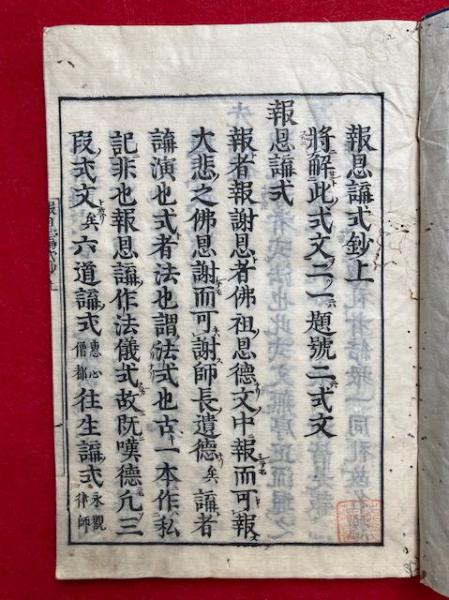 報恩講式鈔上
將解此式文二一題號二式文
報恩講式
報者報謝恩者佛祖恩德文中報而可報
大悲之佛恩謝而可謝師長遺德矣講者
講演也式者法也謂法式也古一本作私
記非也報恩講作法儀式故既嘆德凡三
段式文矣六道講式惠心僧都往生講式永觀律師